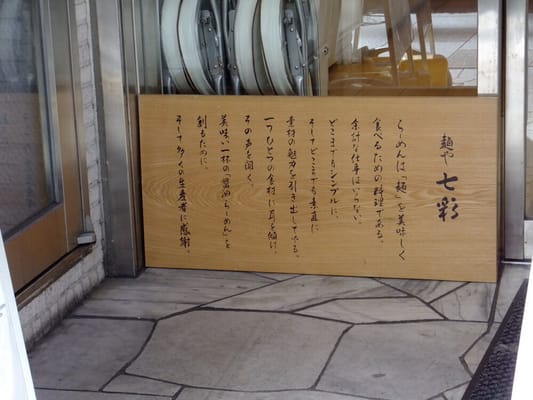 麺や 七彩
らーめんは「麺」を美味しく
食べるための料理である。
余計な仕事はいらない。
どこまでもシンプルに、
そしてどこまでも素直に
素材の魅力を引き出してやる。
一つひとつの食材に耳を傾け、
その声を聞く。
美味い一杯の「醤油らーめん」を
創るために。
そして多くの生産者に感謝。